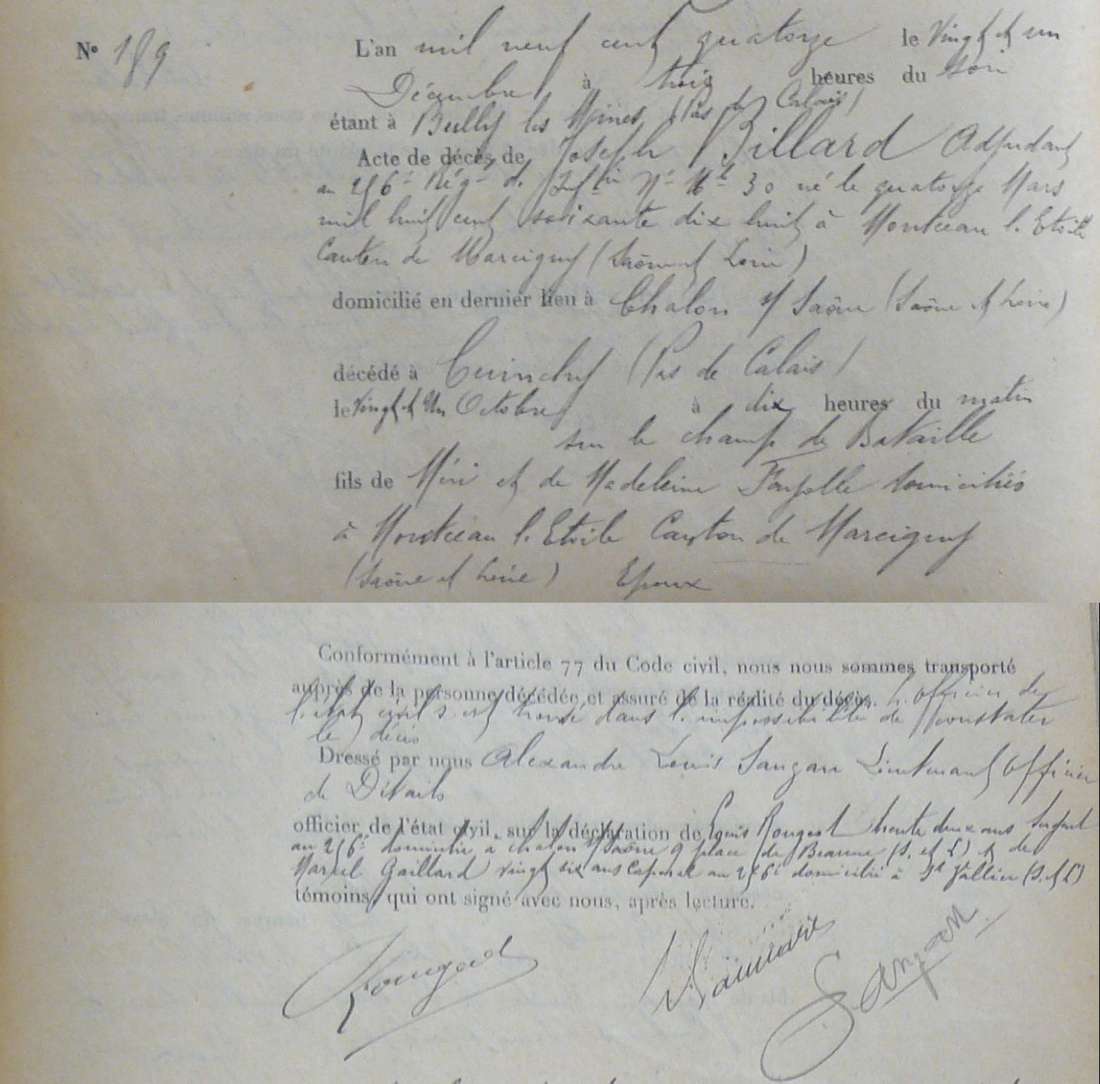 N° 189 L'an mil neuf cent quatorze le Vingt et un
Décembre à trois heures du soir
étant à Bully les Mines (Pas de Calais)
Acte de décès de Joseph Billard Adjudant
au 256e Régt d' Infie N° Mle 30 né le quatorze Mars
mil huit cent soixante dix huit à Montceau l'Etoile
Canton de Marcigny (Saône et Loire)
domicilié en dernier lieu à Chalon s/ Saône (Saône et Loire)
décédé à Cuinchy (Pas de Calais)
le Vingt et Un Octobre à dix heures du matin
sur le champ de Bataille
fils de et de Madeleine Fayolle domiciliés
à Montceau l'Etoile Canton de Marcigny
(Saône et Loire) Epoux
Conformément à l'article 77 du Code civil, nous nous sommes transporté
auprès de la personne décédée et assuré de la réalité du décès. L'officier de
l'état civil s'est trouvé dans l'impossibilité de constater
le décès
Dressé par nous Alexandre Louis Sangan Lieutenant Officier
de Détails
officier de l'état civil, sur la déclaration de Louis Rougeot trente deux ans Sergent
au 256e domicilié à chalon s/Saône 9 place de Beaune (S. et L) et de
Marcel Gaillard vingt six ans Caporal au 256e domicilié à St Vallier (S. et L)
témoins, qui ont signé avec nous, après lecture.
Sangan